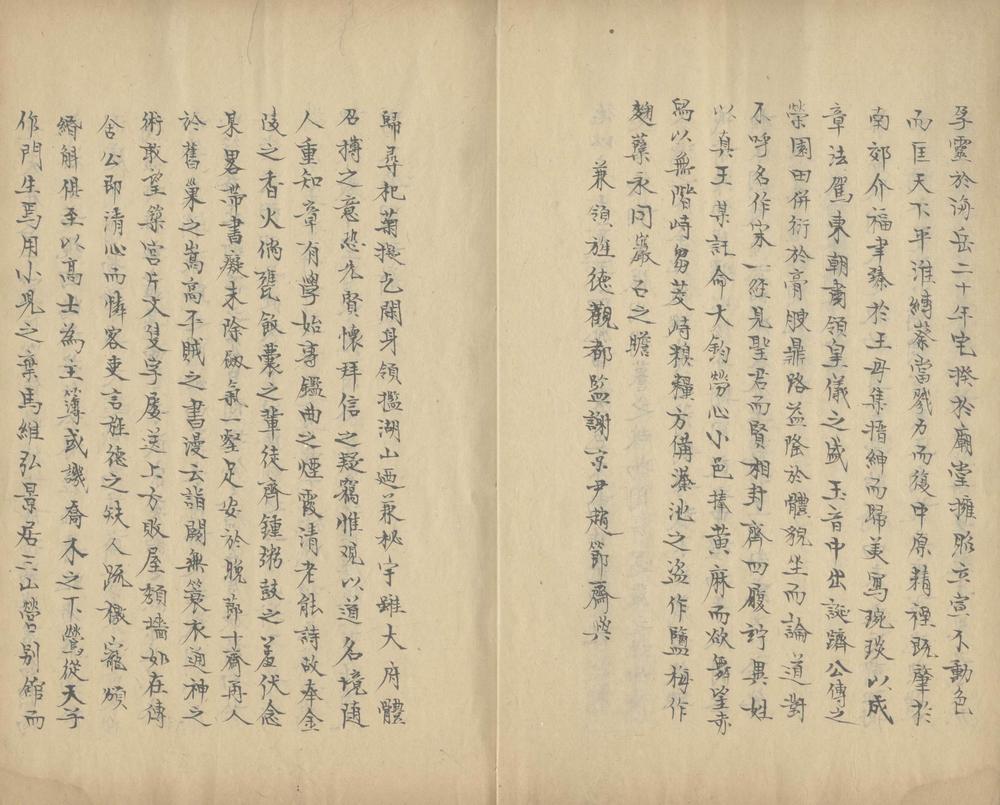 孕靈於海岳二十年宅揆於廟堂擁貂立宣不動色
而匡天下平淮縛蔡當戮力而復中原精禋既肇於
南郊介福聿臻於王母集搢紳而歸美寫琬琰以成
章法駕東朝肅領皇儀之盛玉音中出誕躋公傅之
榮園田併衍於膏腴鼎路益隆於體貌坐而論道對
不呼名作宋一經見聖君而賢相封齊四履詫異姓
以真王某託命大鈞勞心小邑捧黃麻而欲舞望赤
舄以無階峙芻茭峙糗糧方備潢池之盜作鹽梅作
麴蘖永同巖石之瞻
兼領旌德觀都監謝京尹趙節齋與
歸尋杞菊擬乞閑身領攬湖山迺兼秘宇雖大府體
召摶之意恐先賢懷拜信之疑竊惟觀以道名境隨
人重知章有學始專鑑曲之煙霞清老能詩故奉金
陵之香火倘甕飯囊之輩徒齊鍾粥鼓之羞伏念
某畧帶書癡未除劒氣一壑足安於晚節十齋再入
於舊巢之嵩高不賊之書漫云詣闕無蓑衣通神之
術敢望築宮片文隻字屢送上方敗屋頽墻如在傳
舍公即清心而憐客吏言旌德之缺人疏檄寵頒
緡斛俱至以高士為主簿或譏喬木之下鶯從天子
作門生焉用小兒之棄馬維弘景居三山營別館而